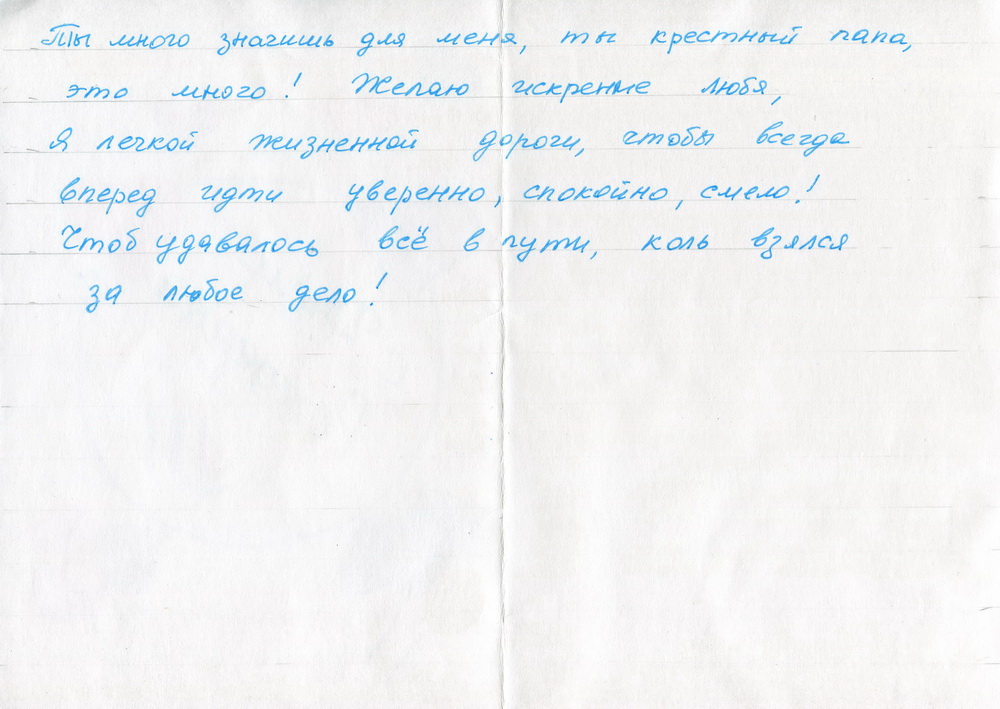 Ты много значишь для меня, ты крестный папа,
это много! Желаю искренне любя,
Я легкой жизненной дороги, чтобы всегда
вперед идти уверенно, спокойно, смело!
Чтоб удавалось всё в пути, коль взялся
за любое дело!